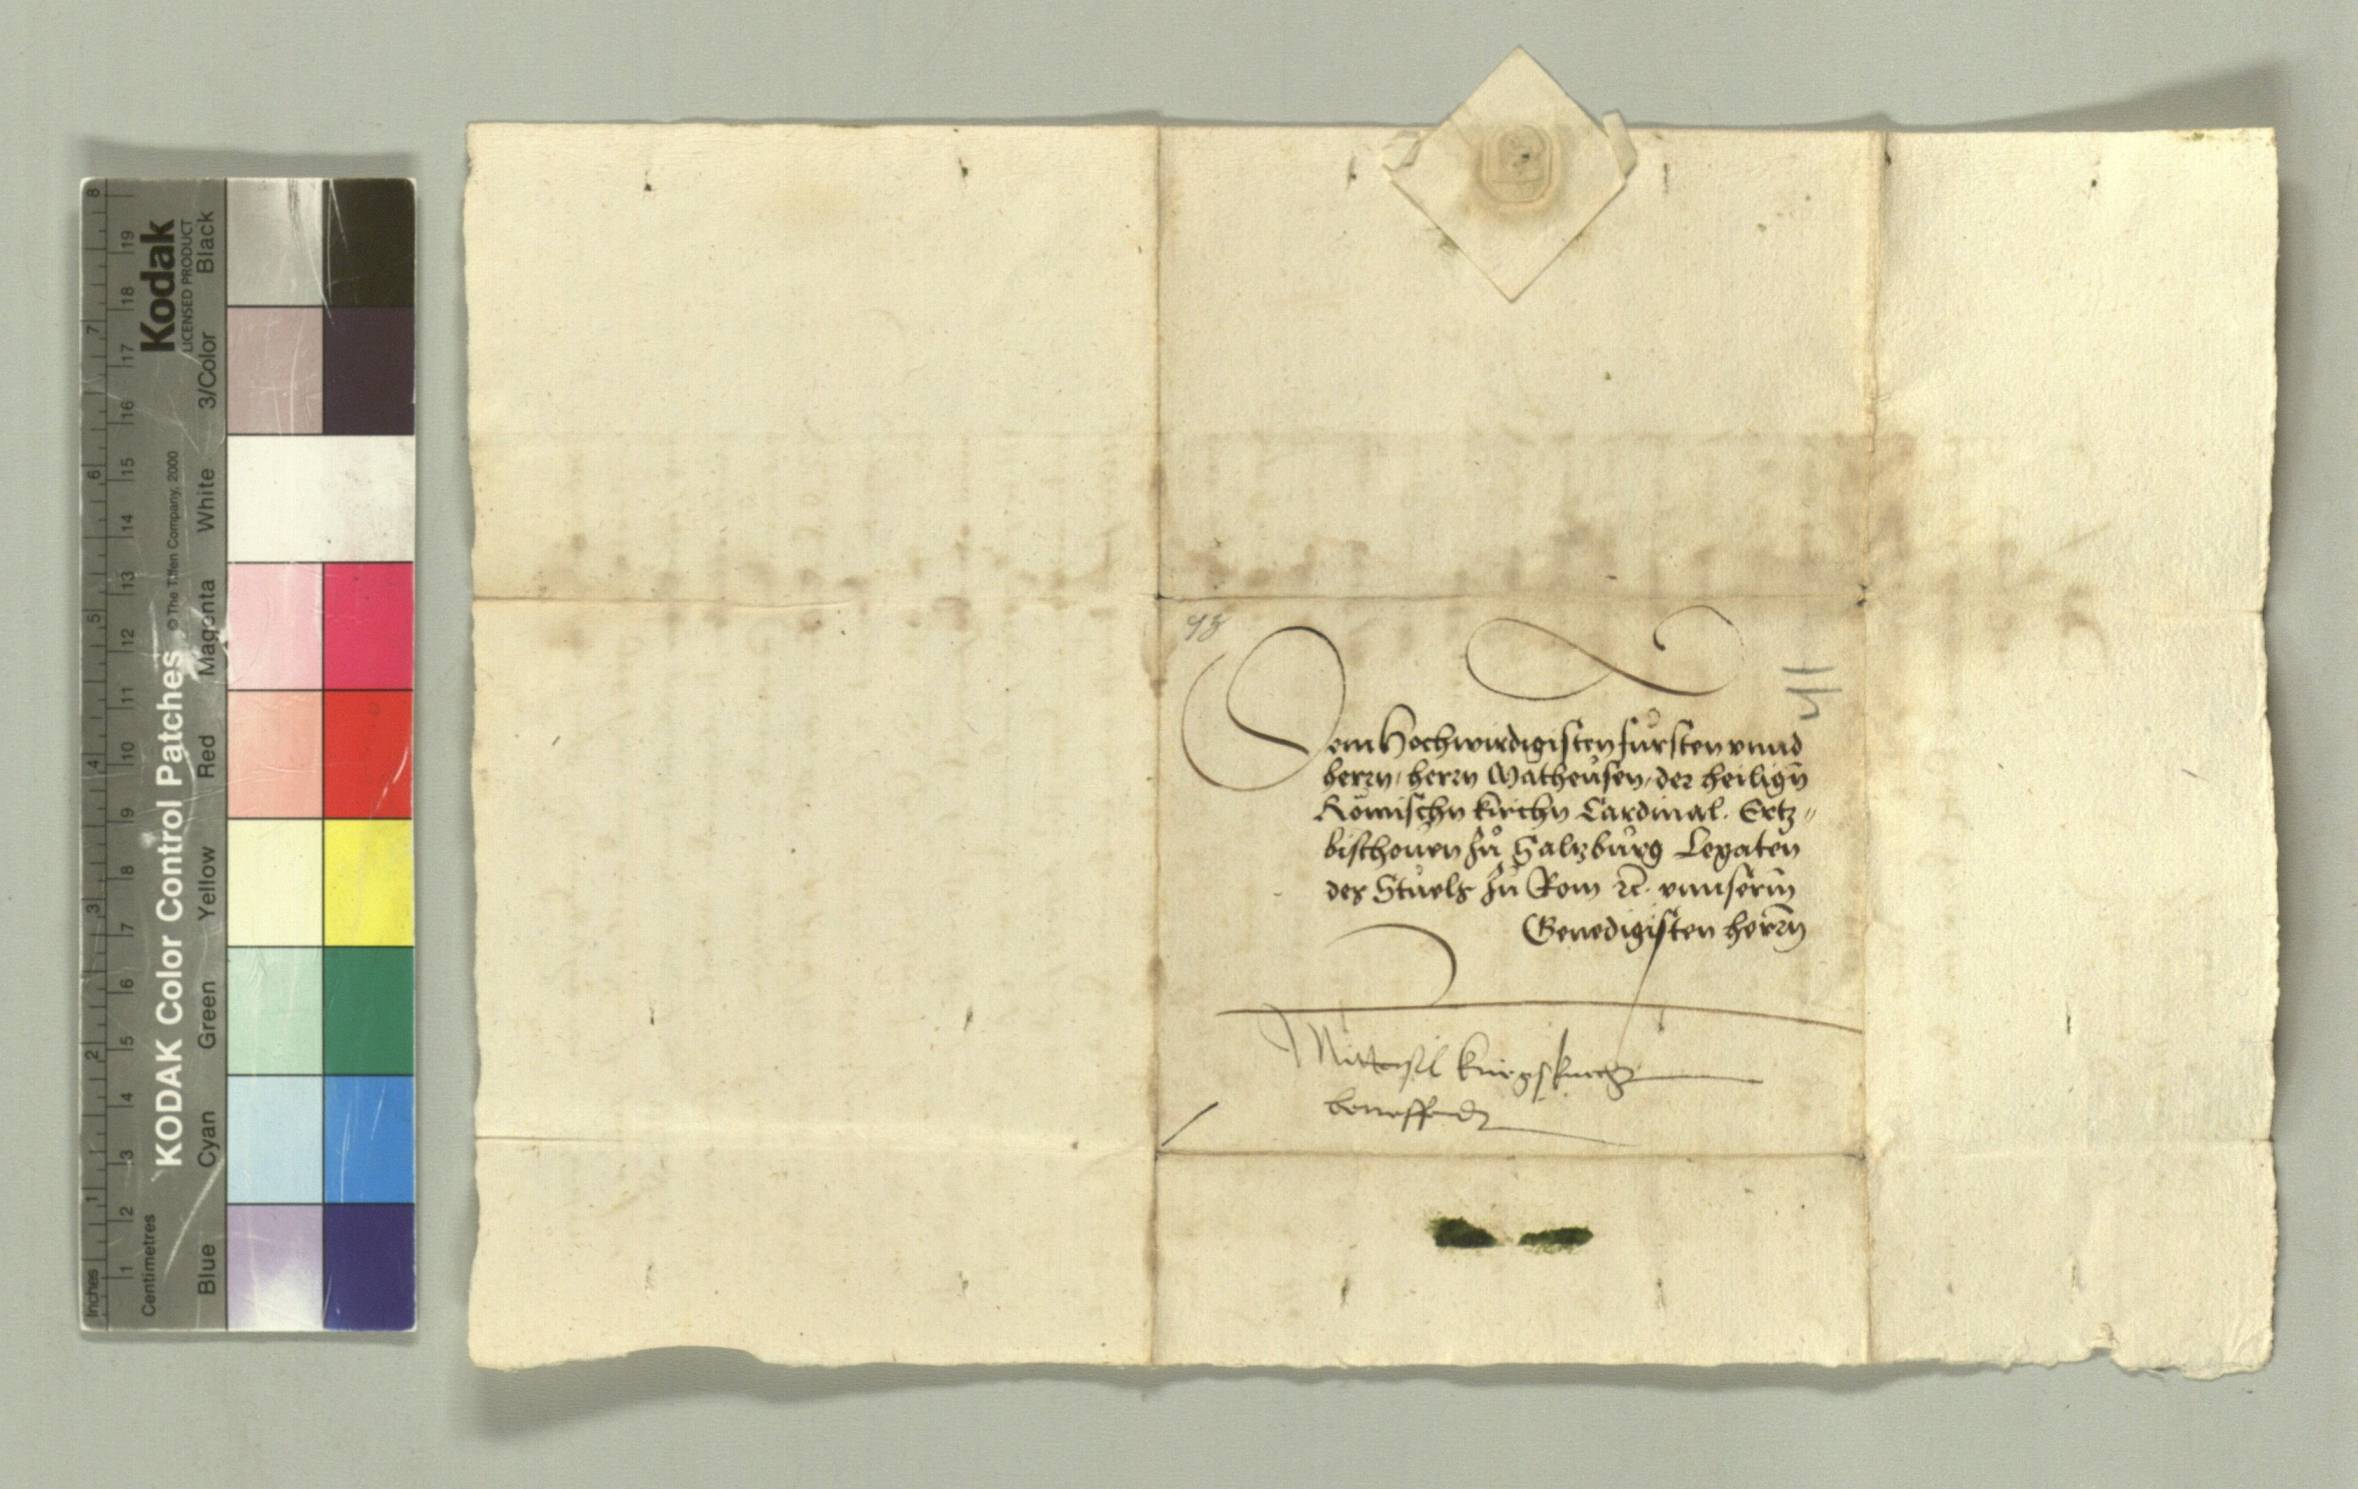 KODAK Color Control Patches
Kodak
LICENSED PRODUCT
© The Tiffen Company, 2000
Inches
Centimetres
1 2 3 4 5 6 7 8
1 2 3 4 5 6 7 8 9 10 11 12 13 14 15 16 17 18 19
Blue Cyan Green Yellow Red Magenta White 3/Color Black
98
41
Dem Hochwirdigisten fůrsten vnnd
herrn, herrn Matheůsen, der heilign̄
Römischn kirchn Cardinal. Ertz„
bischouen zů Saltzbůrg Legaten
des Stůels zů Rom ꝛc̄. vnnserm̄
Genedigisten herrn̄
Mittersil
betreffend